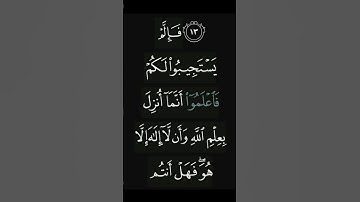 ﴿١٣﴾ فَإِلَّمۡ
يَسۡتَجِيبُواْ لَكُمۡ
فَٱعۡلَمُوٓاْ أَنَّمَآ أُنزِلَ
بِعِلۡمِ ٱللَّهِ وَأَن لَّآ إِلَٰهَ إِلَّا
هُوَۖ فَهَلۡ أَنتُم